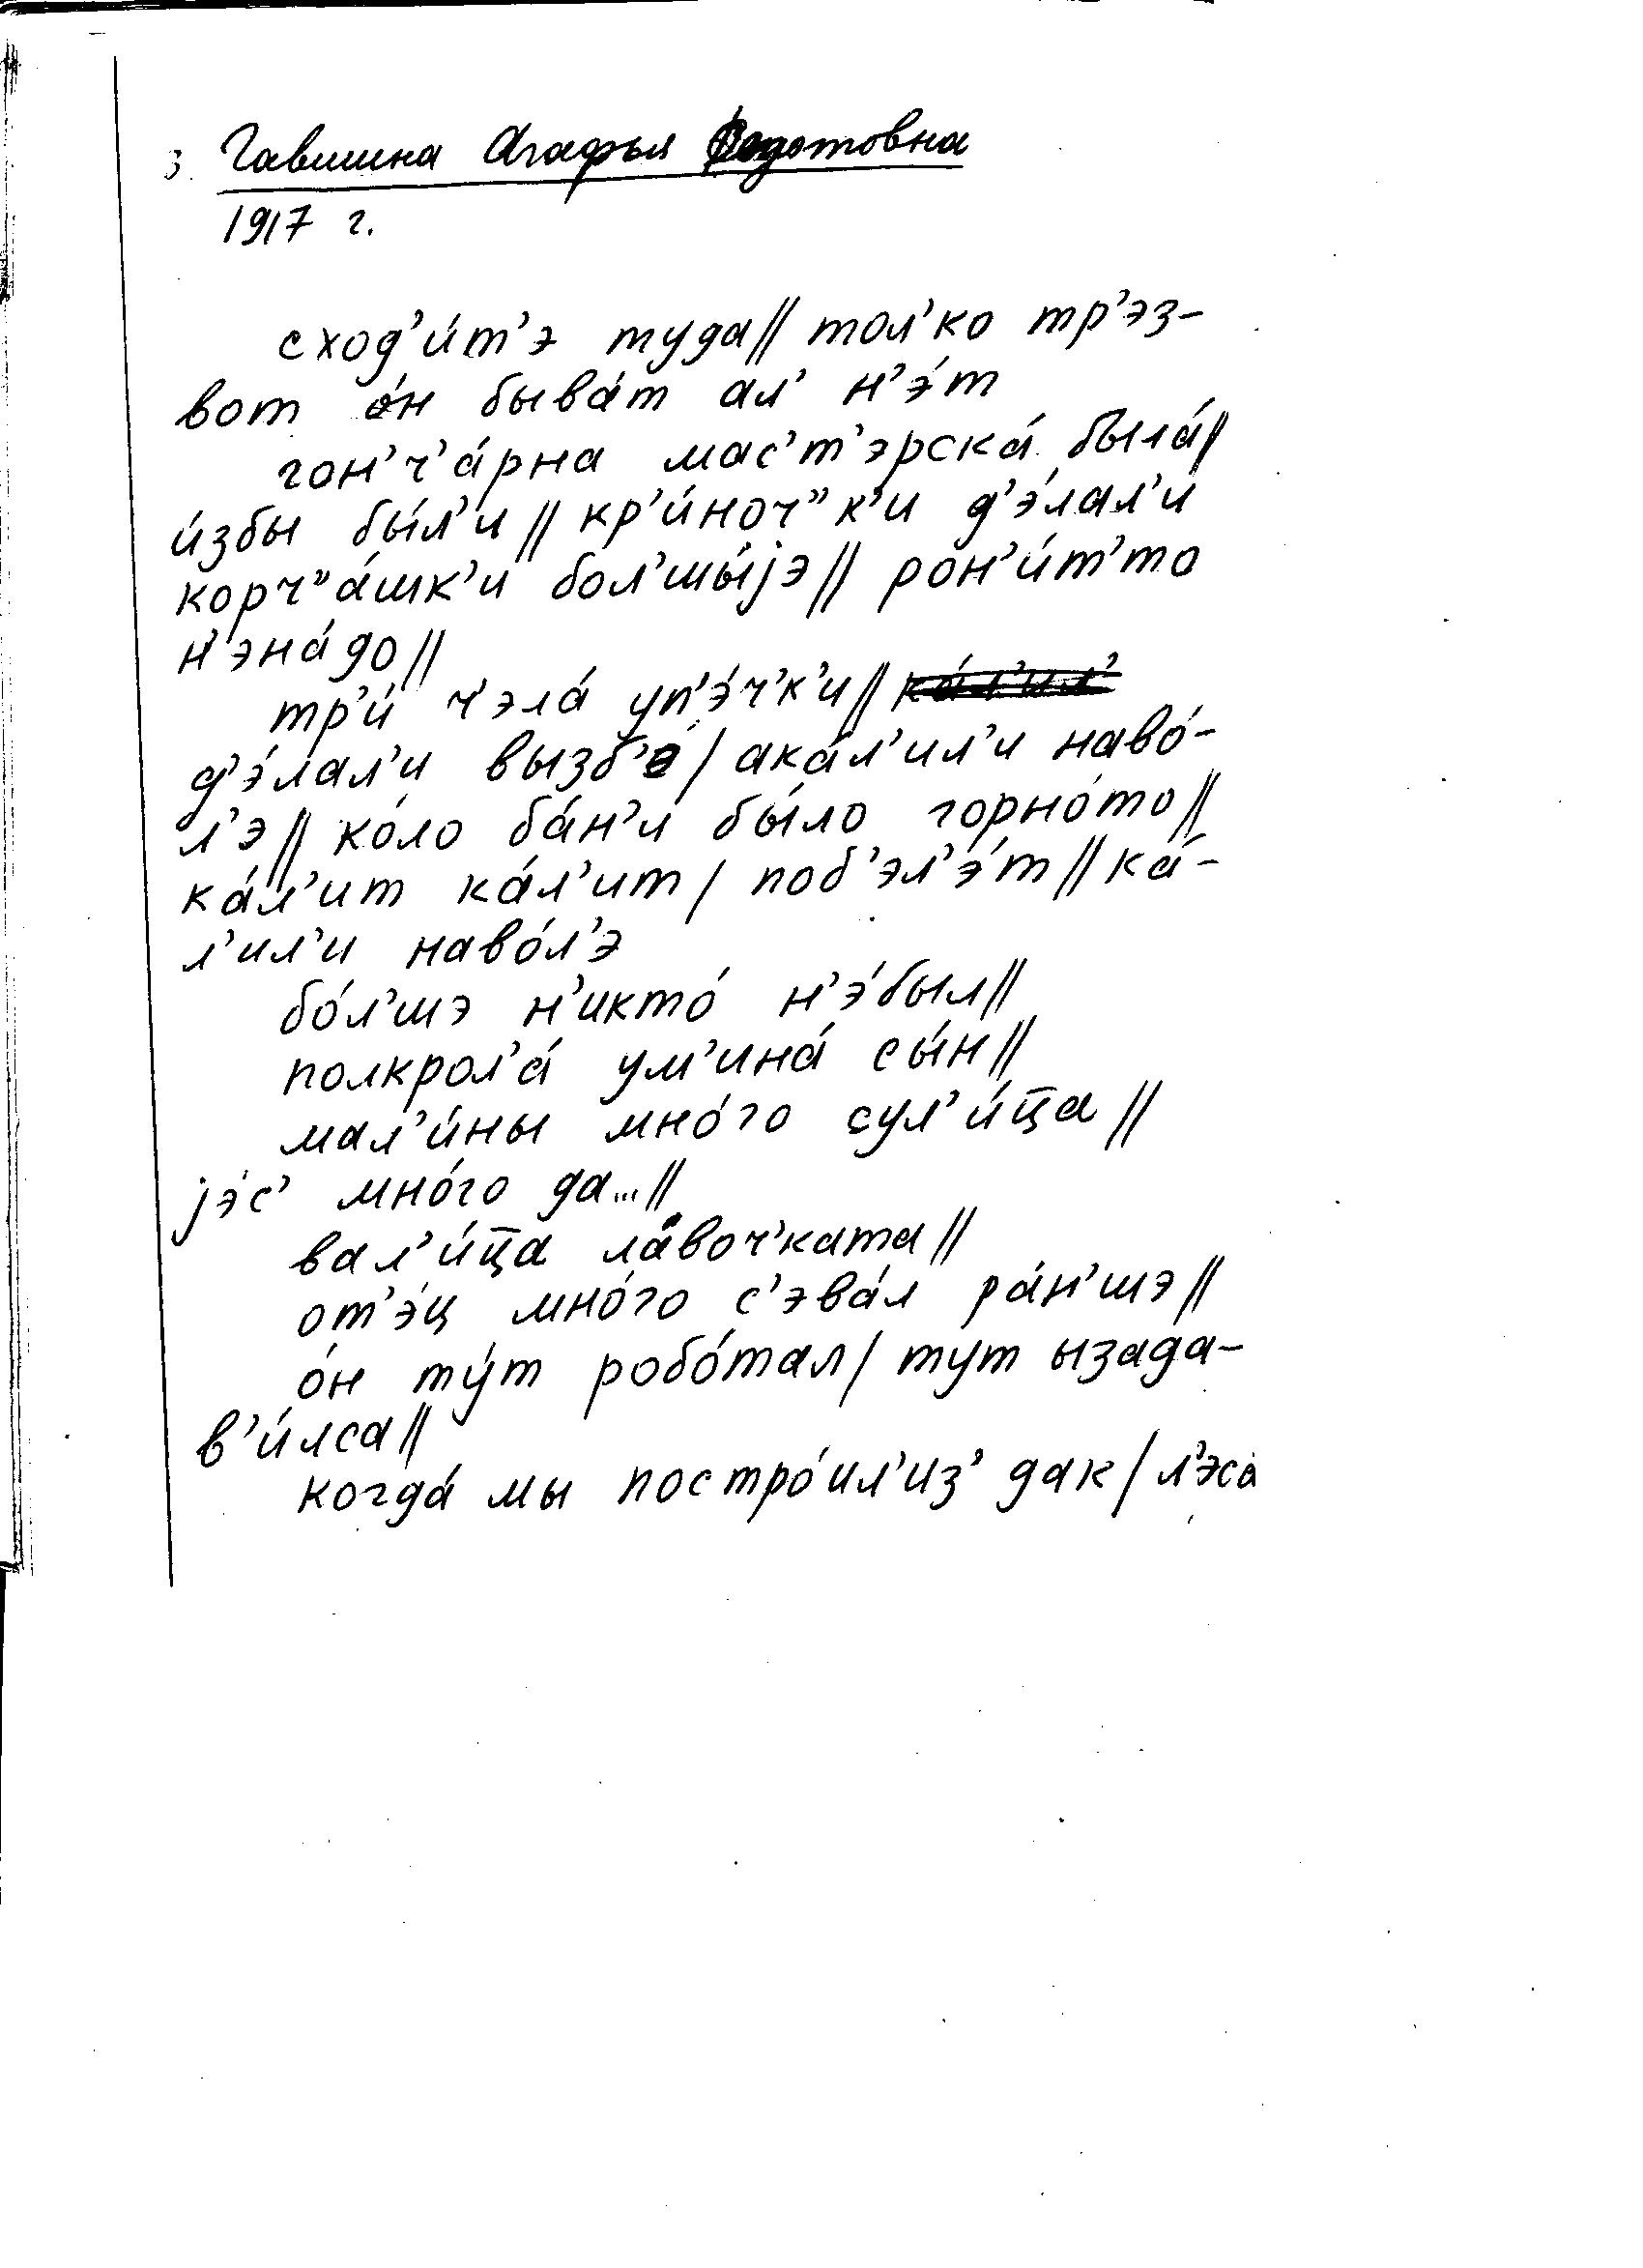 3. Гавшина Агафья Федотовна
1917 г.
сход’и́т’э туда// тол’ко тр’эз-
вот о́н быва́т ал’ н’э́т
гон’ч’а́рна мас’т’эрска́ была́//
и́збы бы́л’и// кр’и́ноч”к’и д’э́лал’и
корч”а́шк’и бол’шы́jэ// рон’и́т’то
н’эна́до//
тр’и́ ч’эла́ уп’э́ч’к’и//
д’э́лал’и вызб’е́/ ака́л’ил’и наво́-
л’э// ко́ло ба́н’и бы́ло горно́то//
ка́л’ит ка́л’ит/ поб’эл’э́т// ка́-
л’ил’и наво́л’э
бо́л’шэ н’икто́ н’э́был//
полкрол’а́ ум’ина́ сы́н//
мал’и́ны мно́го сул’и́ц̅а//
jэ́с’ мно́го да...//
вал’и́ц̅а ла́воч’ката//
от’э́ц мно́го с’эва́л ра́н’шэ//
о́н ту́т робо́тал/ тут ызада-
в’и́лса//
когда́ мы постро́ил’из’ дак/ л’эса